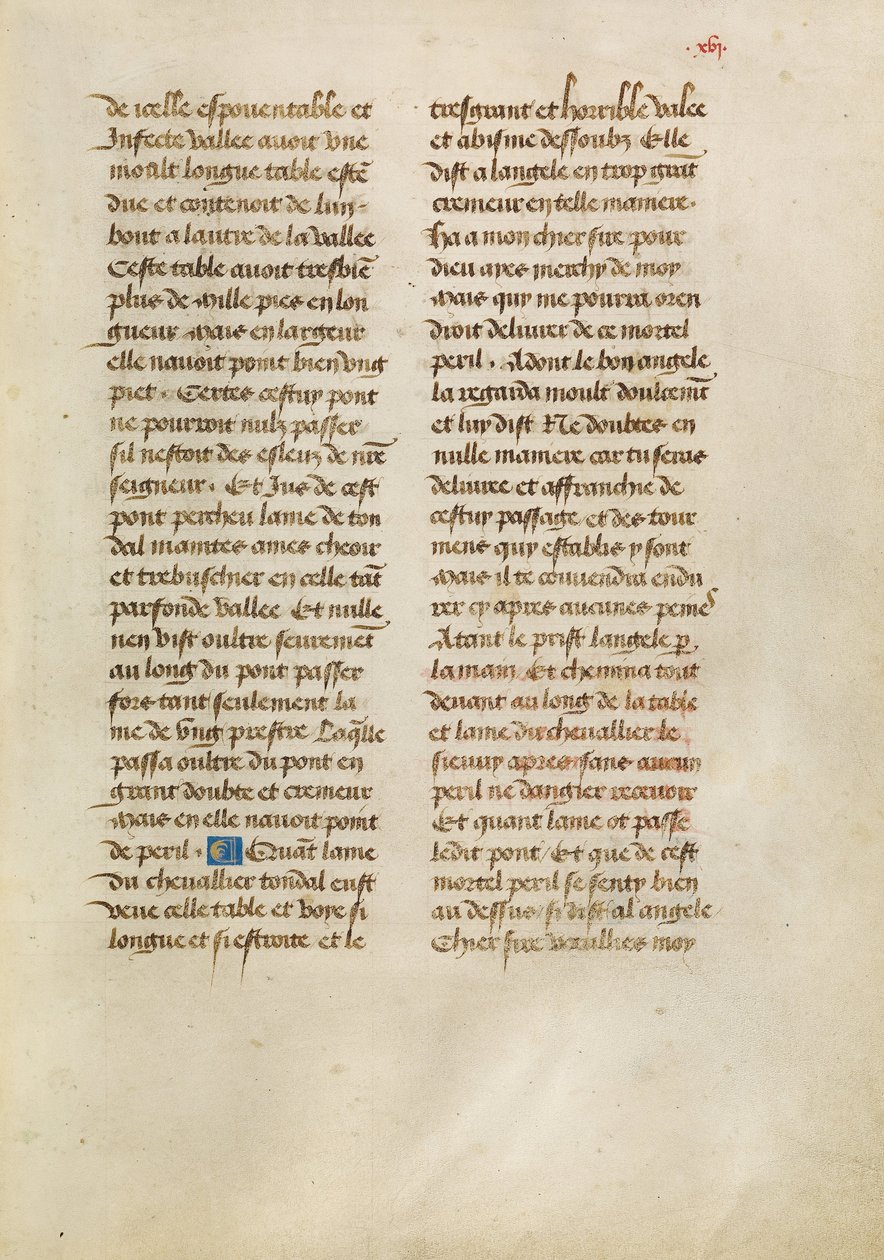 .xvj.
de icelle espouentable et
Infecte vallee auoit vne
moult longue table estẽ
due et contenoit de lun-
bout a lautre de la vallee
Ceste table auoit tresbiẽ
plus de mille pies en lon
gueur mais en largeur
elle nauoit point bien vng
piet . Certes cestuy pont
ne pourroit nulz passer
sil nestoit des esleuz de nr̃e
seigneur . Et Jus de cest
pont percheu lame de ton
dal maintes ames cheoir
et trebuschier en celle tãt
parfonde vallee Et nulle
nen vist oultre seuremẽt
au long du pont passer
fors tant seulement la
me de vng prestre Laq̃lle
passa oultre du pont en
grant doubte et cremeur
mais en elle nauoit point
de peril . Quãt lame
du cheuallier tondal eust
veue celle table et voye si
longue et si estroite et le
tresgrant et horrible valee
et abisme dessoubz Elle
dist a langele en trop grãt
cremeur en telle maniere.
Ha a mon chier sire pour
dieu ayes merchy de moy
mais quy me pourra oren
droit deliurer de ce mortel
peril . Adont le bon angele
la regarda moult doulcemẽt
et luy dist Ne doubtes en
nulle maniere car tu seras
deliure et affranchie de
cestuy passage et des tour
mens quy establis y sont
mais il te conuendra endu
rer cy apres aucunes peines
Atant le prist langele p̱
la main Et chemina tout
deuant au long de la table
et lame du cheuallier le
sieuuy apres sans aucun
peril ne dangier receuoir
Et quant lame ot passe
ledit pont / Et que de cest
mortel peril se senty bien
au dessus / si dist al angele /
Chier sire vueillies moy